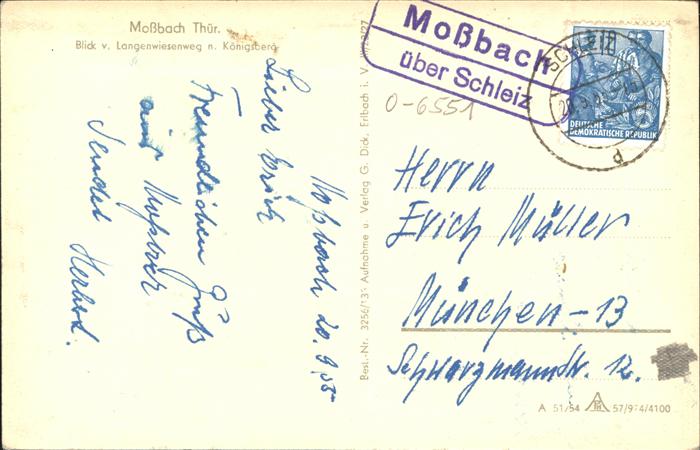 Moßbach Thür.
Blick v. Langenwiesenweg n. Königsberg
Moßbach
über Schleiz
0-6551
SCHLEIZ
d
DEUTSCHE
DEMOKRATISCHE REPUBLIK
Moßbach 20.9.55
Lieber Erich
Freundlichen Gruß
aus Moßbach
sendet Herbert.
Best.-Nr. 3256/13 Aufnahme u. Verlag G. Dick, Erlbach i. V.
Herrn
Erich Müller
München-13
Schwarzmannstr. 12.
A 51/54 57/974/4100